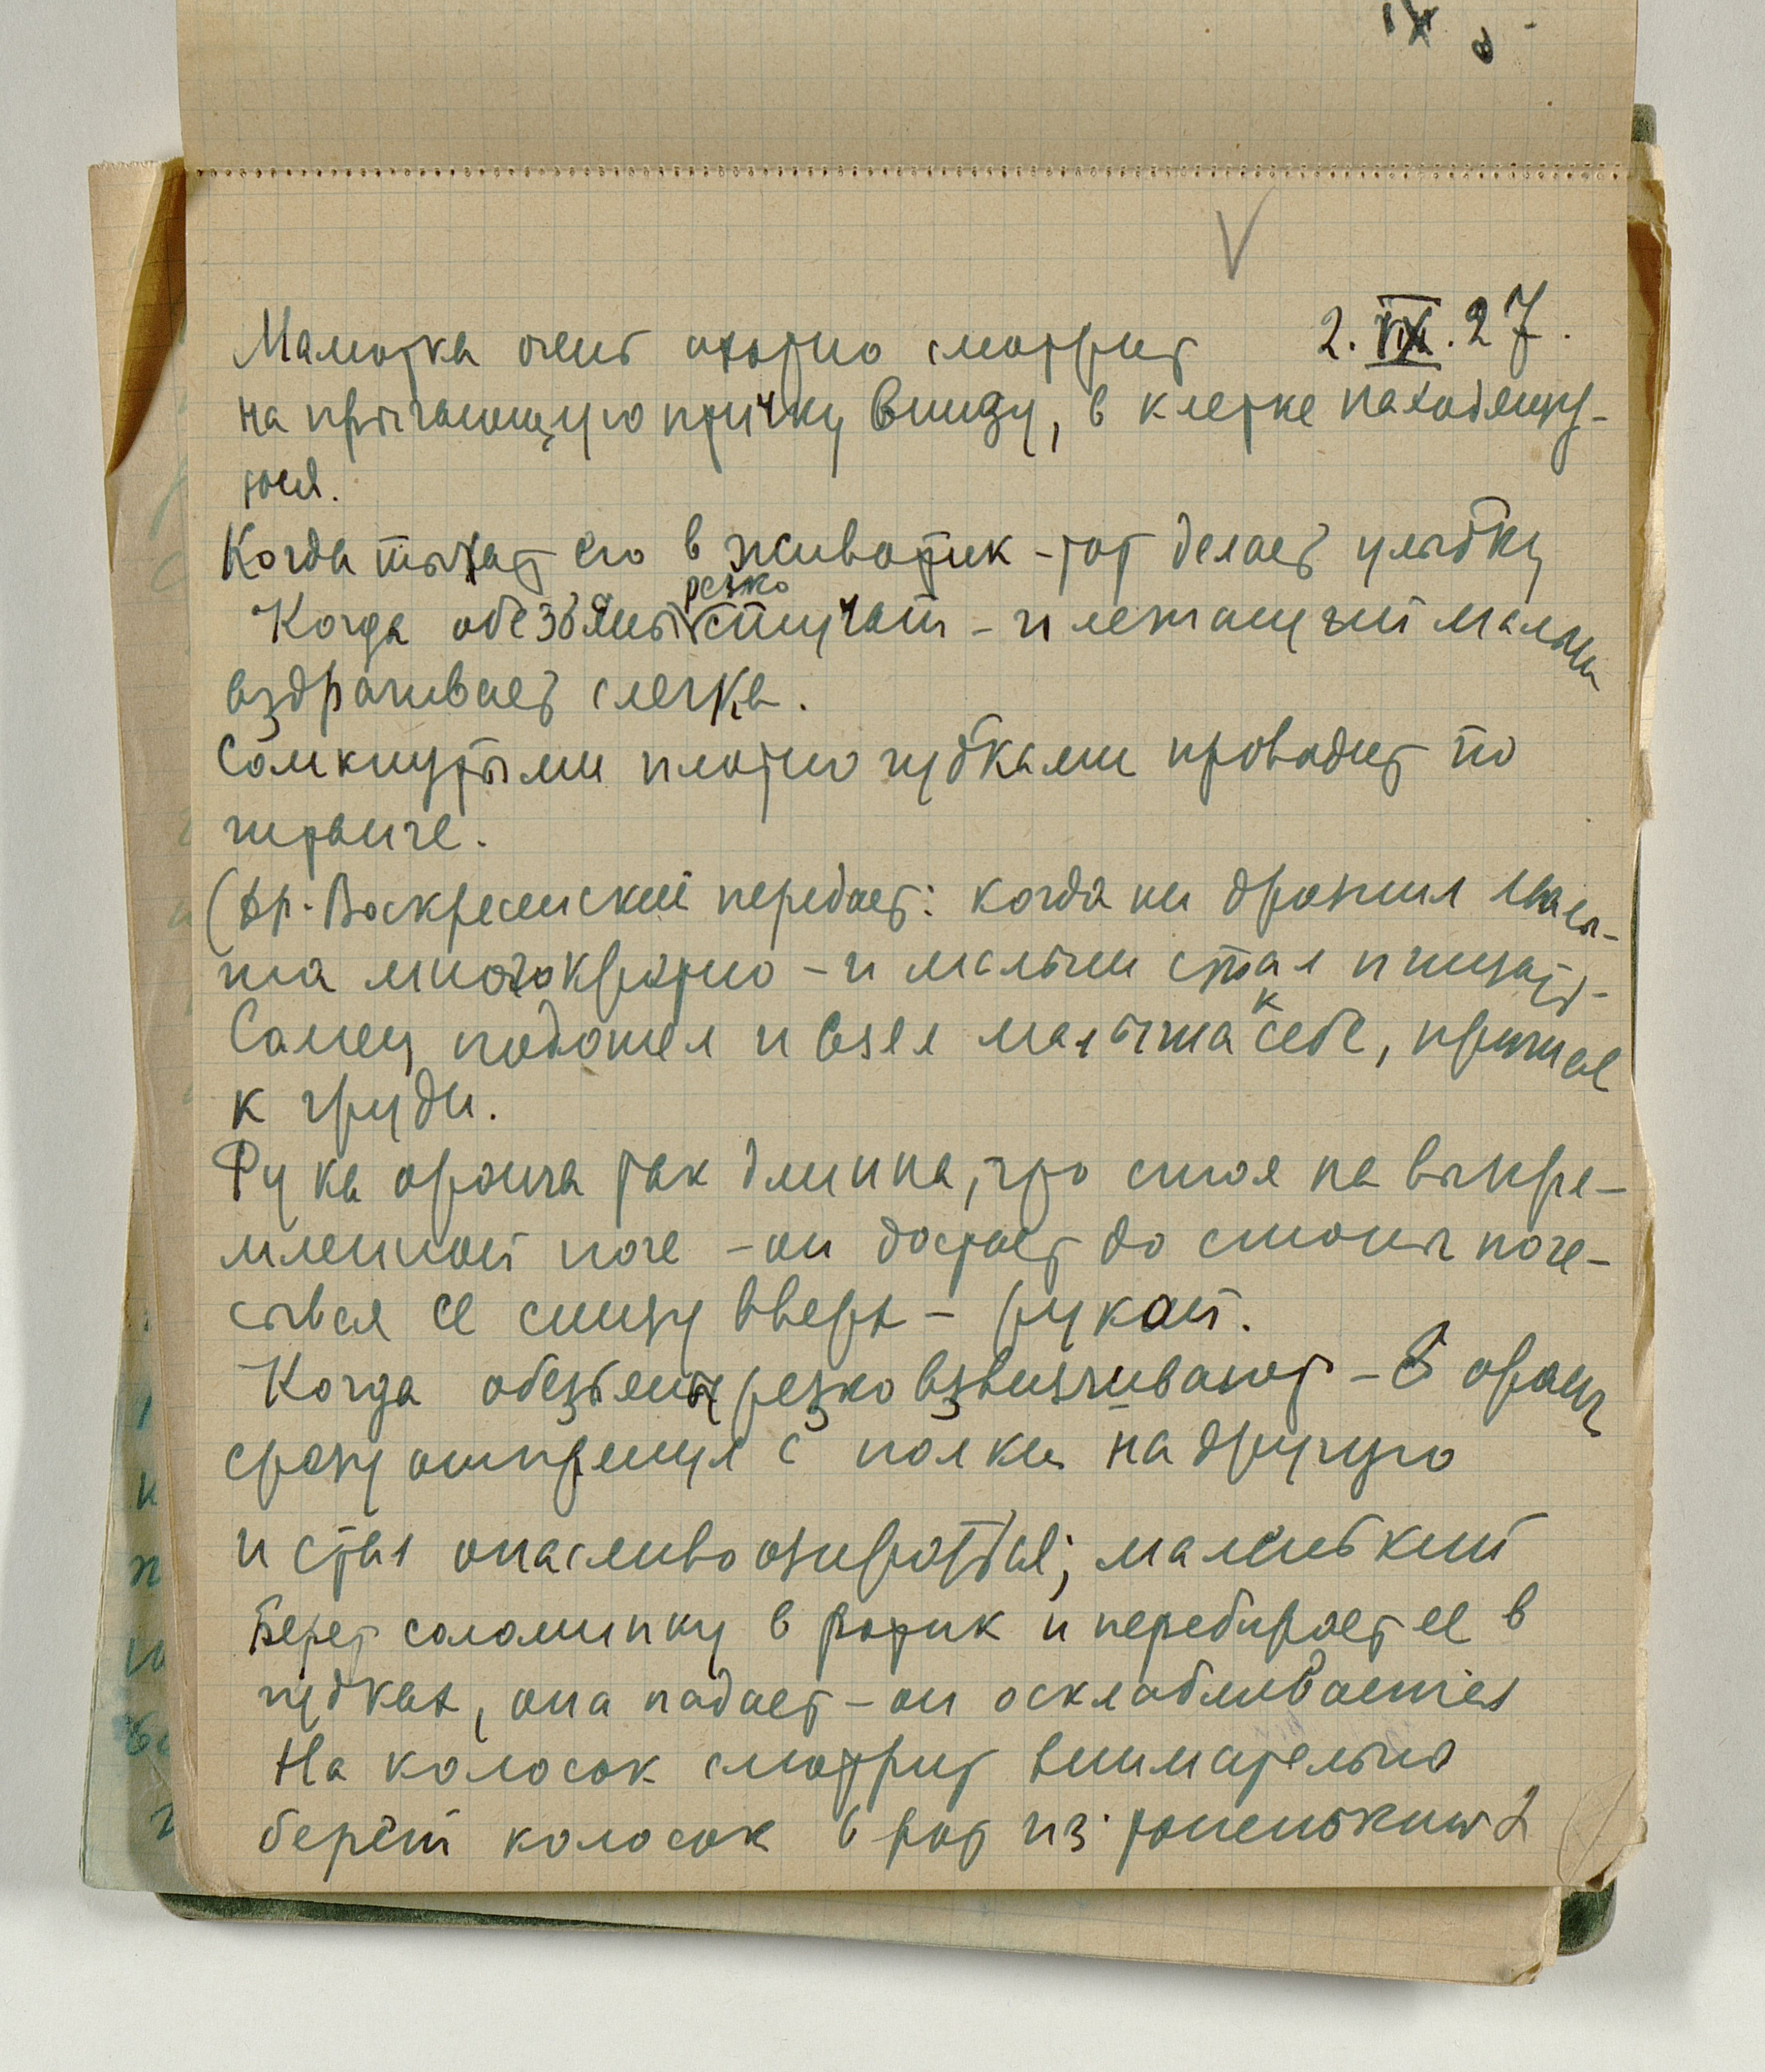 IX
2. IX. 27.
Малютка очень охотно смотрит
на прыгающую птичку внизу, в клетке находящу-
юся.
Когда тычат его в животик - тот делает улыбку
Когда обезьяны резко стучат - и лежащий малыш
вздрагивает слегка.
Сомкнутыми плотно губками проводит по
(Др. Воскресенский передает: когда он дразнил малы-
ша многократно - и малыш стал пищать -
Самец подошел и взял малыша к себе, прижал
к груди.
Рука оранга так длинна, что стоя на выпря-
мленной ноге - он достает до стопы поче-
сывая ее снизу вверх - рукой.
Когда обезьяны резко взвизгивают - ♂ оранг
сразу отпрянул с полки на другую
и стал опасливо озираться; маленький
Берет соломинку в ротик и перебирает ее в
губках, она падает - он осклабливается
На колосок смотрит внимательно
берёт колосок в рот из тоненьких 2